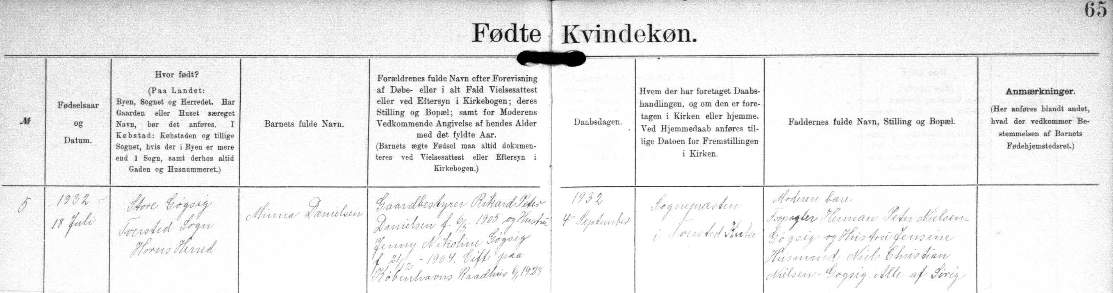 65
Fødte Kvindekøn.
№
Fødselsaar
og
Datum.
Hvor født?
(Paa Landet:
Byen, Sognet og Herredet. Har
Gaarden eller Huset særeget
Navn, bør det anføres. I
Købstad: Købstaden og tillige
Sognet, hvis der i Byen er mere
end 1 Sogn, samt derhos altid
Gaden og Husnummeret.)
Barnets fulde Navn.
Forældrenes fulde Navn efter Forevisning
af Døbe- eller i alt Fald Vielsesattest
eller ved Eftersyn i Kirkebogen; deres
Stilling og Bopæl; samt for Moderens
Vedkommende Angivelse af hendes Alder
med det fyldte Aar.
(Barnets ægte Fødsel maa altid dokumen-
teres ved Vielsesattest eller Eftersyn i
Kirkebogen.)
Daabsdagen.
Hvem der har foretaget Daabs-
handlingen, og om den er fore-
tagen i Kirken eller hjemme.
Ved Hjemmedaab anføres til-
lige Datoen for Fremstillingen
i Kirken.
Faddernes fulde Navn, Stilling og Bopæl.
Anmærkninger.
(Her anføres blandt andet,
hvad der vedkommer Be-
stemmelsen af Barnets
Fødehjemstedsret.)
5
1932
18 Juli
Store Gogsig
Torsted Sogn
Horns Herred
Minna Danielsen
Gaardbestyrer Rikard Peter
Danielsen f. 1905 og Hustru
Jenny Nikoline Gogsig
f. 1904. Viet paa
Københavns Raadhus 1928
1932
4 September
Sognepræsten
i Torsted Kirke
Moderen bar.
Forpagter Herman Peter Nielsen-
Gogsig og Hustru Jensine
Husmand Niels Christian
Nielsen-Gogsig. Alle af